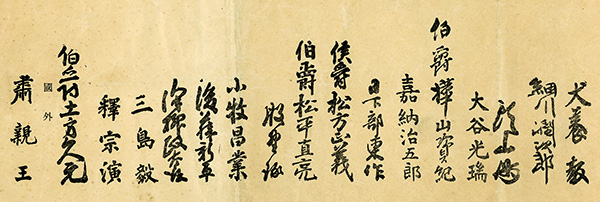 犬養毅
細川潤次郎
頭山満
大谷光瑞
伯爵樺山資紀
嘉納治五郎
日下部東作
侯爵松方正義
伯爵松平直亮
股野琢
小牧昌業
後藤新平
三島毅
釋宗演
伯爵土方久元
國外
肅親王